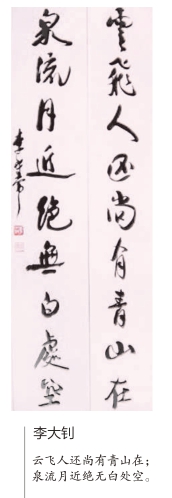 雲飛人还尚有青山在
泉流月近絶無白處空
李大钊
云飞人还尚有青山在；
泉流月近绝无白处空。